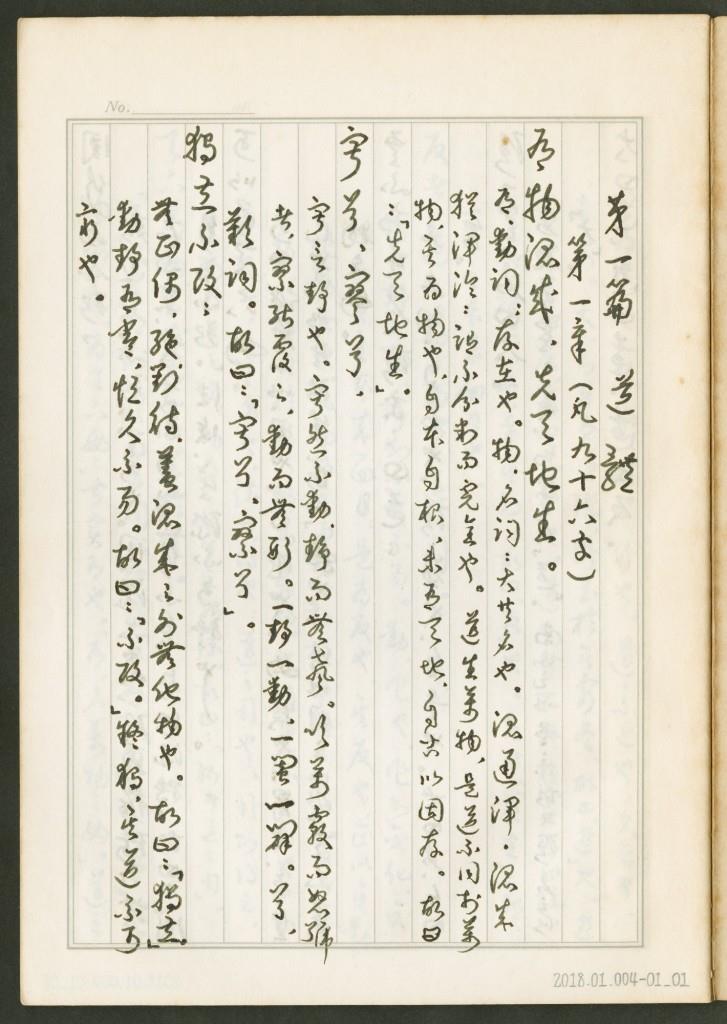 No.
第一篇 道體
第一章(一凡九十六字)
有物混成、先天地生。
有、動詞:存在也。物、名詞:大共名也。混通渾。混成
猶渾淪:謂不分判而完全也。道生萬物、是道不同於萬
物、其為物也、自本自根、未有天地、自古以固存。故曰
:「先天地生」。
寂兮、寥兮、
寂言靜也。寂然不動、靜而無聲。以萬竅而怒號
者、寥然覆之、動而無形。一靜一動、一闔一闢。兮、
歎詞。故曰:「寂兮、寥兮」。
獨立不改:
無匹偶、絕對待、蓋混成之外無他物也。故曰:「獨立」。
動靜有常、恆久不易。故曰:「不改。」雖獨、其道不可
窮也。
2018.01.004-01_01